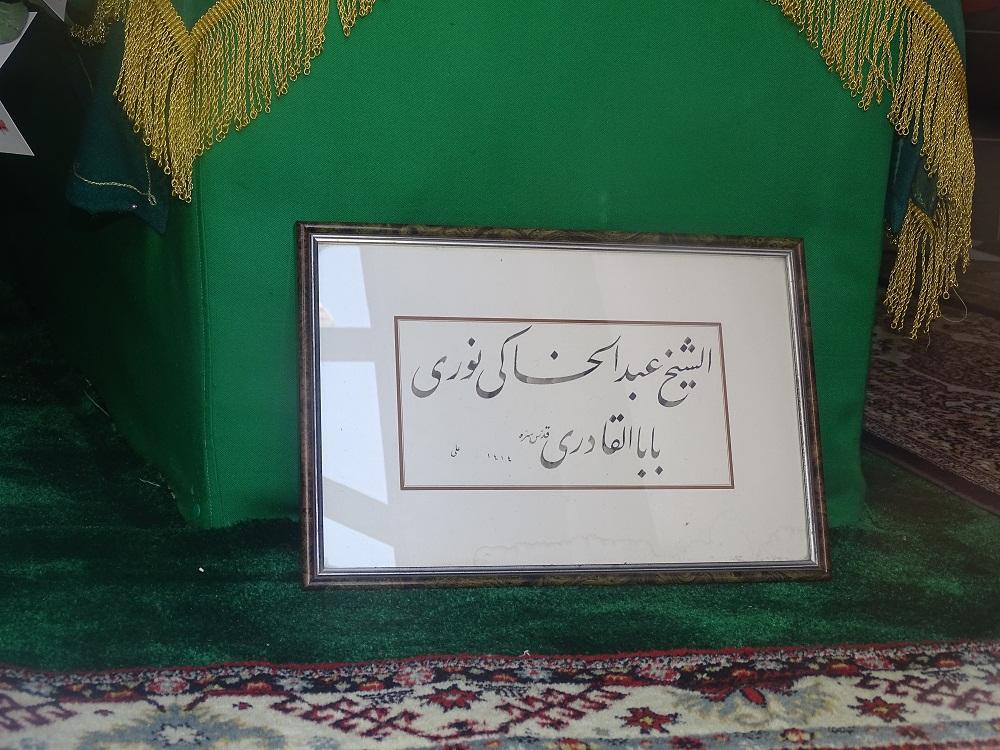 الشيخ عبد الخاكی نوری
بابا القادری قدّس سرّه
١٤١٤ علی